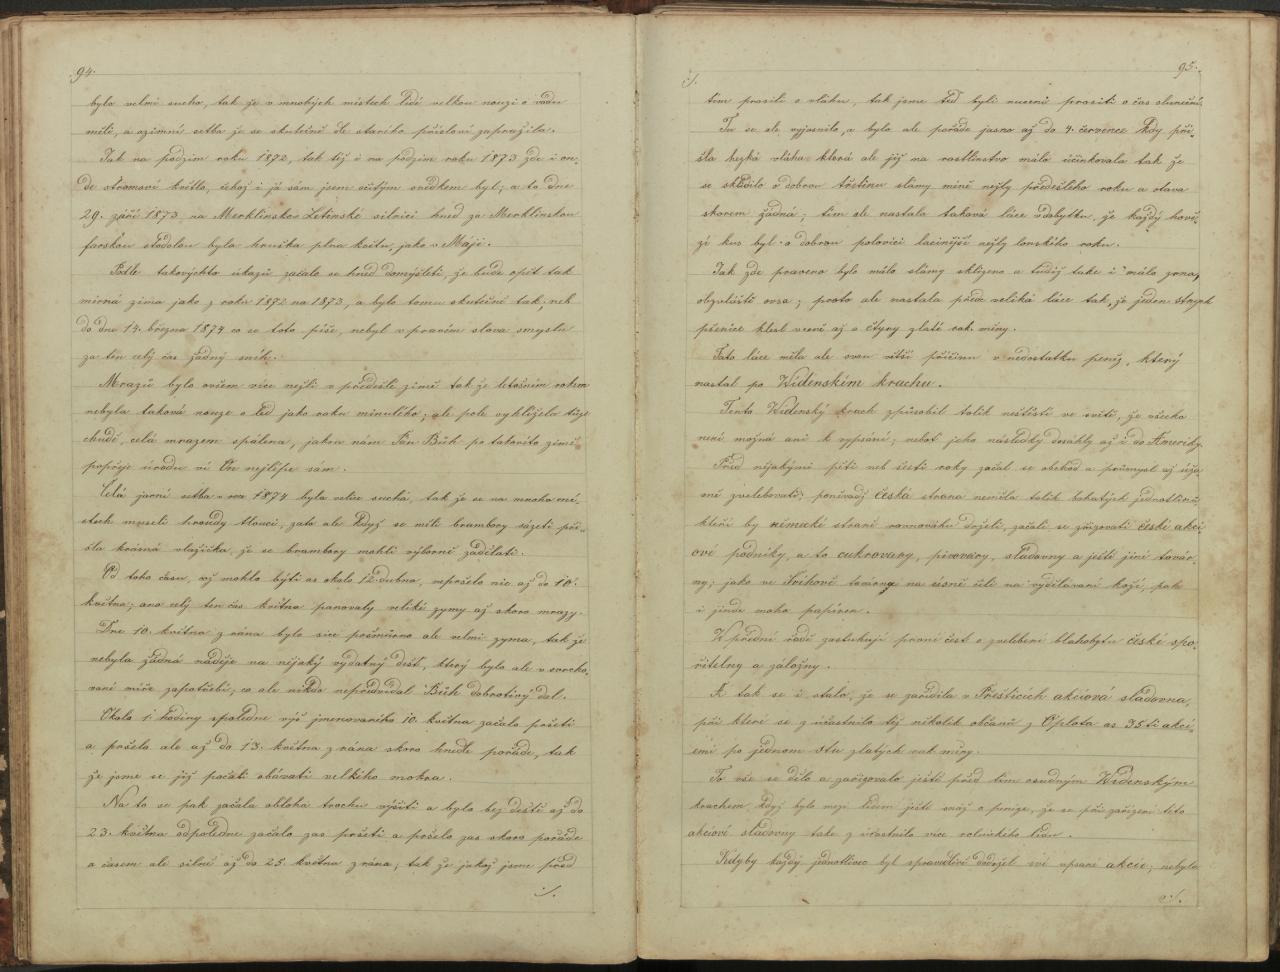 .94.
bylo velmi sucho, tak že v mnohých místech lidé velkou nouzi o vodu
měli, a ozimní setba že se skutečně dle starého přísloví zaprášila.
Jak na podzim roku 1872, tak též i na podzim roku 1873 zde i on-
de stromové květlo, čehož i já sám jsem očitým svědkem byl; a to dne
29. září 1873 na Merklínsko Letinské silnici hned za Merklínskou
farskou stodolou byla hruška plna květu, jako v Máji.
Podle takovýchto úkazů začalo se hned domýšleti, že bude opět tak
mírná zima jako z roku 1872 na 1873, a bylo tomu skutečně tak, neb
do dne 14. března 1874 co se toto píše, nebyl v pravém slova smyslu
za ten celý čas žádný sníh.
Mrazů bylo ovšem více nežli v předešlé zimě tak že letošním rokem
nebyla taková nouze o led jako roku minulého; ale pole vyhlížela tuze
chudě, celá mrazem spálena, jakou nám Pán Bůh po takovéto zimě
popřeje úrodu ví On nejlépe sám.
Celá jarní setba roku 1874 byla velice suchá, tak že se na mnoho mí-
stech museli hroudy tlouci, zato ale když se měli brambory sázeti při-
šla krásná vlažička, že se brambory mohli výborně zadělati.
Od toho času, což mohlo býti as okolo 12 dubna, nepršelo nic až do 10.
května; ano celý ten čas května panovaly veliké zymy až skoro mrazy.
Dne 10. května z rána bylo sice pošmůrno ale velmi zyma, tak že
nebyla žádná naděje na nějaký vydatný dešť, který bylo ale v svrcho-
vané míře zapotřebí; co ale nikdo nepředvídal Bůh dobrotivý dal.
Okolo 1 hodiny spoledne výš jmenovaného 10. května začalo pršeti
a pršelo ale až do 13. května z rána skoro hustě pořáde, tak
že jsme se již počali obávati velkého mokra.
Na to se pak začala obloha trochu výsiti a bylo bez deště až do
23. května odpoledne začalo zas pršeti a pršelo zas skoro pořáde
a časem ale silně až do 25. května z rána, tak že jakož jsme před
./.
./.
95.
tím prosili o vláhu, tak jsme teď byli nuceni prositi o čas slunečný.
Tu se ale vyjasnilo, a bylo ale pořáde jasno až do 4. července kdy při-
šla hezká vláha která ale již na rostlinstvo málo účinkovala tak že
se sklidilo o dobrou třetinu slámy míně nežly předešlého roku a otava
skorem žádná; tím ale nastala taková láce v dobytku, že každý hově-
zí kus byl o dobrou polovici lacinější nežly lonského roku.
Jak zde praveno bylo málo slámy sklizeno a tudíž take i málo zrna,
obzvláště ovsa; proto ale nastala přece veliká láce tak, že jeden strych
pšenice klesl v ceně až o čtyry zlaté rak. měny.
Tato láce měla ale svou větší příčinu v nedostatku peněz, který
nastal po Wídenským krachu.
Tento Wídenský krach způsobil tolik neštěstí ve světě, že všecko
není možná ani k vypsání; neboť jeho následky dosáhly až i do Ameriky.
Před nějakými pěti neb šesti roky začal se obchod a průmysl až úža-
sně zvelebovati; poněvadž česká strana neměla tolik bohatých jednotlivců
kteří by německé straně rovnováhu drželi, začali se zřizovati české akci-
ové podniky, a to cukrovary, pivováry, sládovny a ještě jiné továr-
ny; jako ve továrna na na vydělávaní koží, pak
i jinde moho papíren.
W přední řadě zasluhují první čest o zvelebení blahobytu české spo-
řitelny a záložny.
A tak se i stalo, že se zařídila v Přešticích akciová sladovna,
při které se z účastnilo též několik občanů z Oplota as 35ti akci-
emi po jednom stu zlatých rak. měny.
To vše se dělo a zařizovalo ještě před tím osudným Wídenským
krachem, když bylo mezi lidem ještě snáž o peníze, že se při zařízení této
akciové sladovny take z účastnilo více rolnického lidu.
Kdyby každý jednotlivec byl spravedlivě dodržel své upsané akcie; nebylo
./.